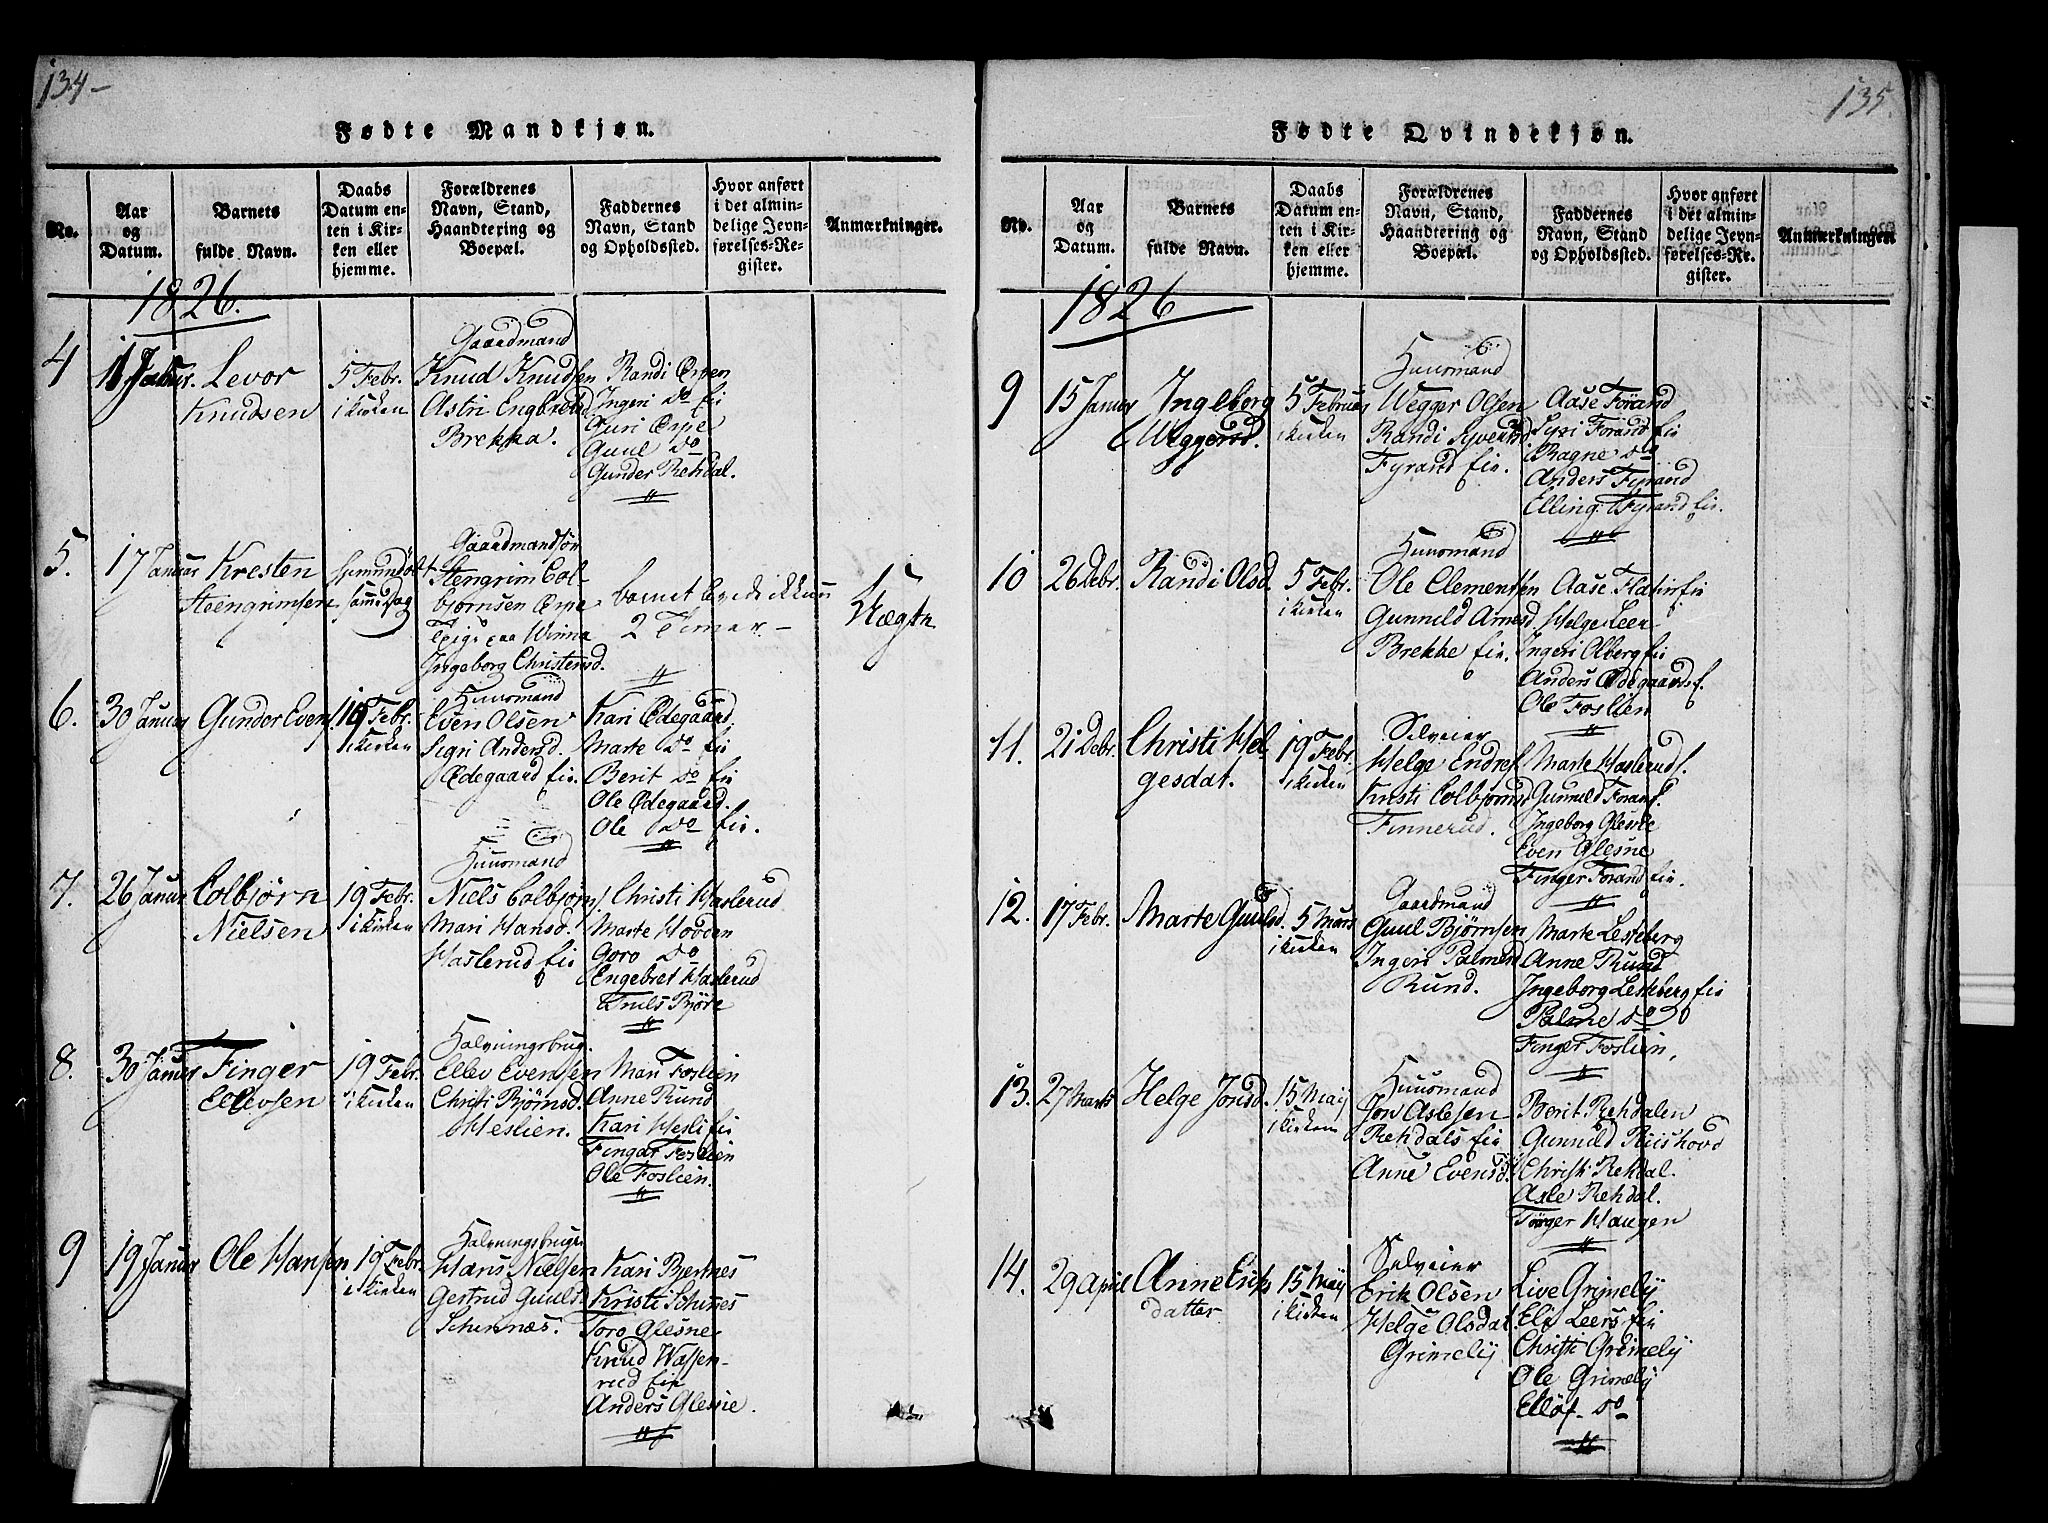 134-
Fødte Mandkjøn.
No.
Aar og Datum.
Barnets fulde Navn.
Daabs Datum enten i Kirken eller hjemme.
Forældrenes Navn, Stand, Haandtering og Boepæl.
Faddernes Navn, Stand og Opholdssted.
Hvor anført i det almindelige Jevnførelses-Register.
Anmærkninger.
1826.
4
Janur.
Levor
Knudsen
5 Febr.
i Kirken
Gaardmand
Knud Knudsen
Astri Engbretsd
Brekka.
Randi Espen
Ingeri do fir
Guri Espe
Guul do
Gunder Rehdal.
5.
17 Januar
Kresten
Steengrimsen
hjemmedøbt
samme Dag
Gaardmandsøn
Stengrim Colbjørnsen Espe
Pige paa Winna
Ingeborg Christensd.
barnet levede ikkun
2 Timer-
Uægte
6.
30 Januar
Gunder Evens.
19 Febr.
i Kirken
Huusmand
Even Olsen
Sigri Andersd.
Ødegaard eie.
Kari Ødegaard.
Marte do eie
Berit do eie
Ole Ødegaard.
Ole do eie.
7.
26 Januar
Colbjørn
Nielsen
19 Febr.
i Kirken
Huusmand
Niels Colbjørns.
Mari Hansd.
Haslerud eie
Christi Haslerud
Marte Hovden
Goro do
Engebret Haslerud
Knuls Bjøre
8.
30 Januar
Finger
Ellevsen
19 Febr.
i Kirken
Halvningsbrug.
Ellev Evensen
Christi Bjørnsd.
Heslien.
Mari Foslien
Anne Rund
Kari Hesli eie
Finger Foslien
Ole Foslien.
9
19 Januar
Ole Hansen
19 Febr.
i Kirken
Halvningsbruger
Hans Nielsen
Gertrud Guuls.
Schinnæs.
Kari Bjertnes
Kristi Schinnes
Toro Glesne
Knud Wassenrud eie
Anders Glesne.
135.
Fødte Qvindekjøn.
No.
Aar og Datum.
Barnets fulde Navn.
Daabs Datum enten i Kirken eller hjemme.
Forældrenes Navn, Stand, Haandtering og Boepæl.
Faddernes Navn, Stand og Opholdssted.
Hvor anført i det almindelige Jevnførelses-Register.
Anmærkninger
1826
9
15 Januar
Ingeborg
Weggersd.
5 Februar
i Kirken
Huusmand
Wegger Olsen
Randi Syversd
Fyrand eie.
Aase Forand
Syri Forand eie
Ragne do
Anders Fyrand
Elling Fyrand eie.
10
26 Debr.
Randi Olsd.
5 Febr.
i Kirken
Huusmand
Ole Clementsen
Gunnild Arnesd.
Brekke eie.
Aase Flahir eie
Helge Leer
Ingeri Olberg eie
Anders Ødegaards e.
Ole Foslien
11.
21 Debr.
Christi Helgesdat.
19 Febr.
i Kirken
Selveier
Helge Endres.
Kristi Colbjornsd
Finnerud.
Marte Haslerud e.
Gunnild Forand e.
Ingeborg Glesne
Even Glesne
Finger Forand eie.
12.
17 Febr.
Marte Guulsd.
5 Marts
i Kirken
Gaardmand
Guul Bjørnsen
Ingeri Palmesd
Rund.
Marte Lesteberg
Anne Rund
Ingeborg Lesteberg eie
Palme do
Finger Foslien.
13.
27 Marts
Helge Jonsd.
15 Maij
i Kirken
Huusmand
Jon Aslesen
Rehdals eie
Anne Evensd.
Berit Rehdalen
Gunnild Riishovd
Christi Rehdal.
Asle Rehdal.
Torger Haugen
14.
29 April
Anne Eriks
datter
15 Maij
i Kirken
Selveier
Erik Olsen
Helge Olsdat.
Grimelij
Live Grimelij
Eli Leers eie
Christi Grimelij
Ole Grimelij
Elløf do